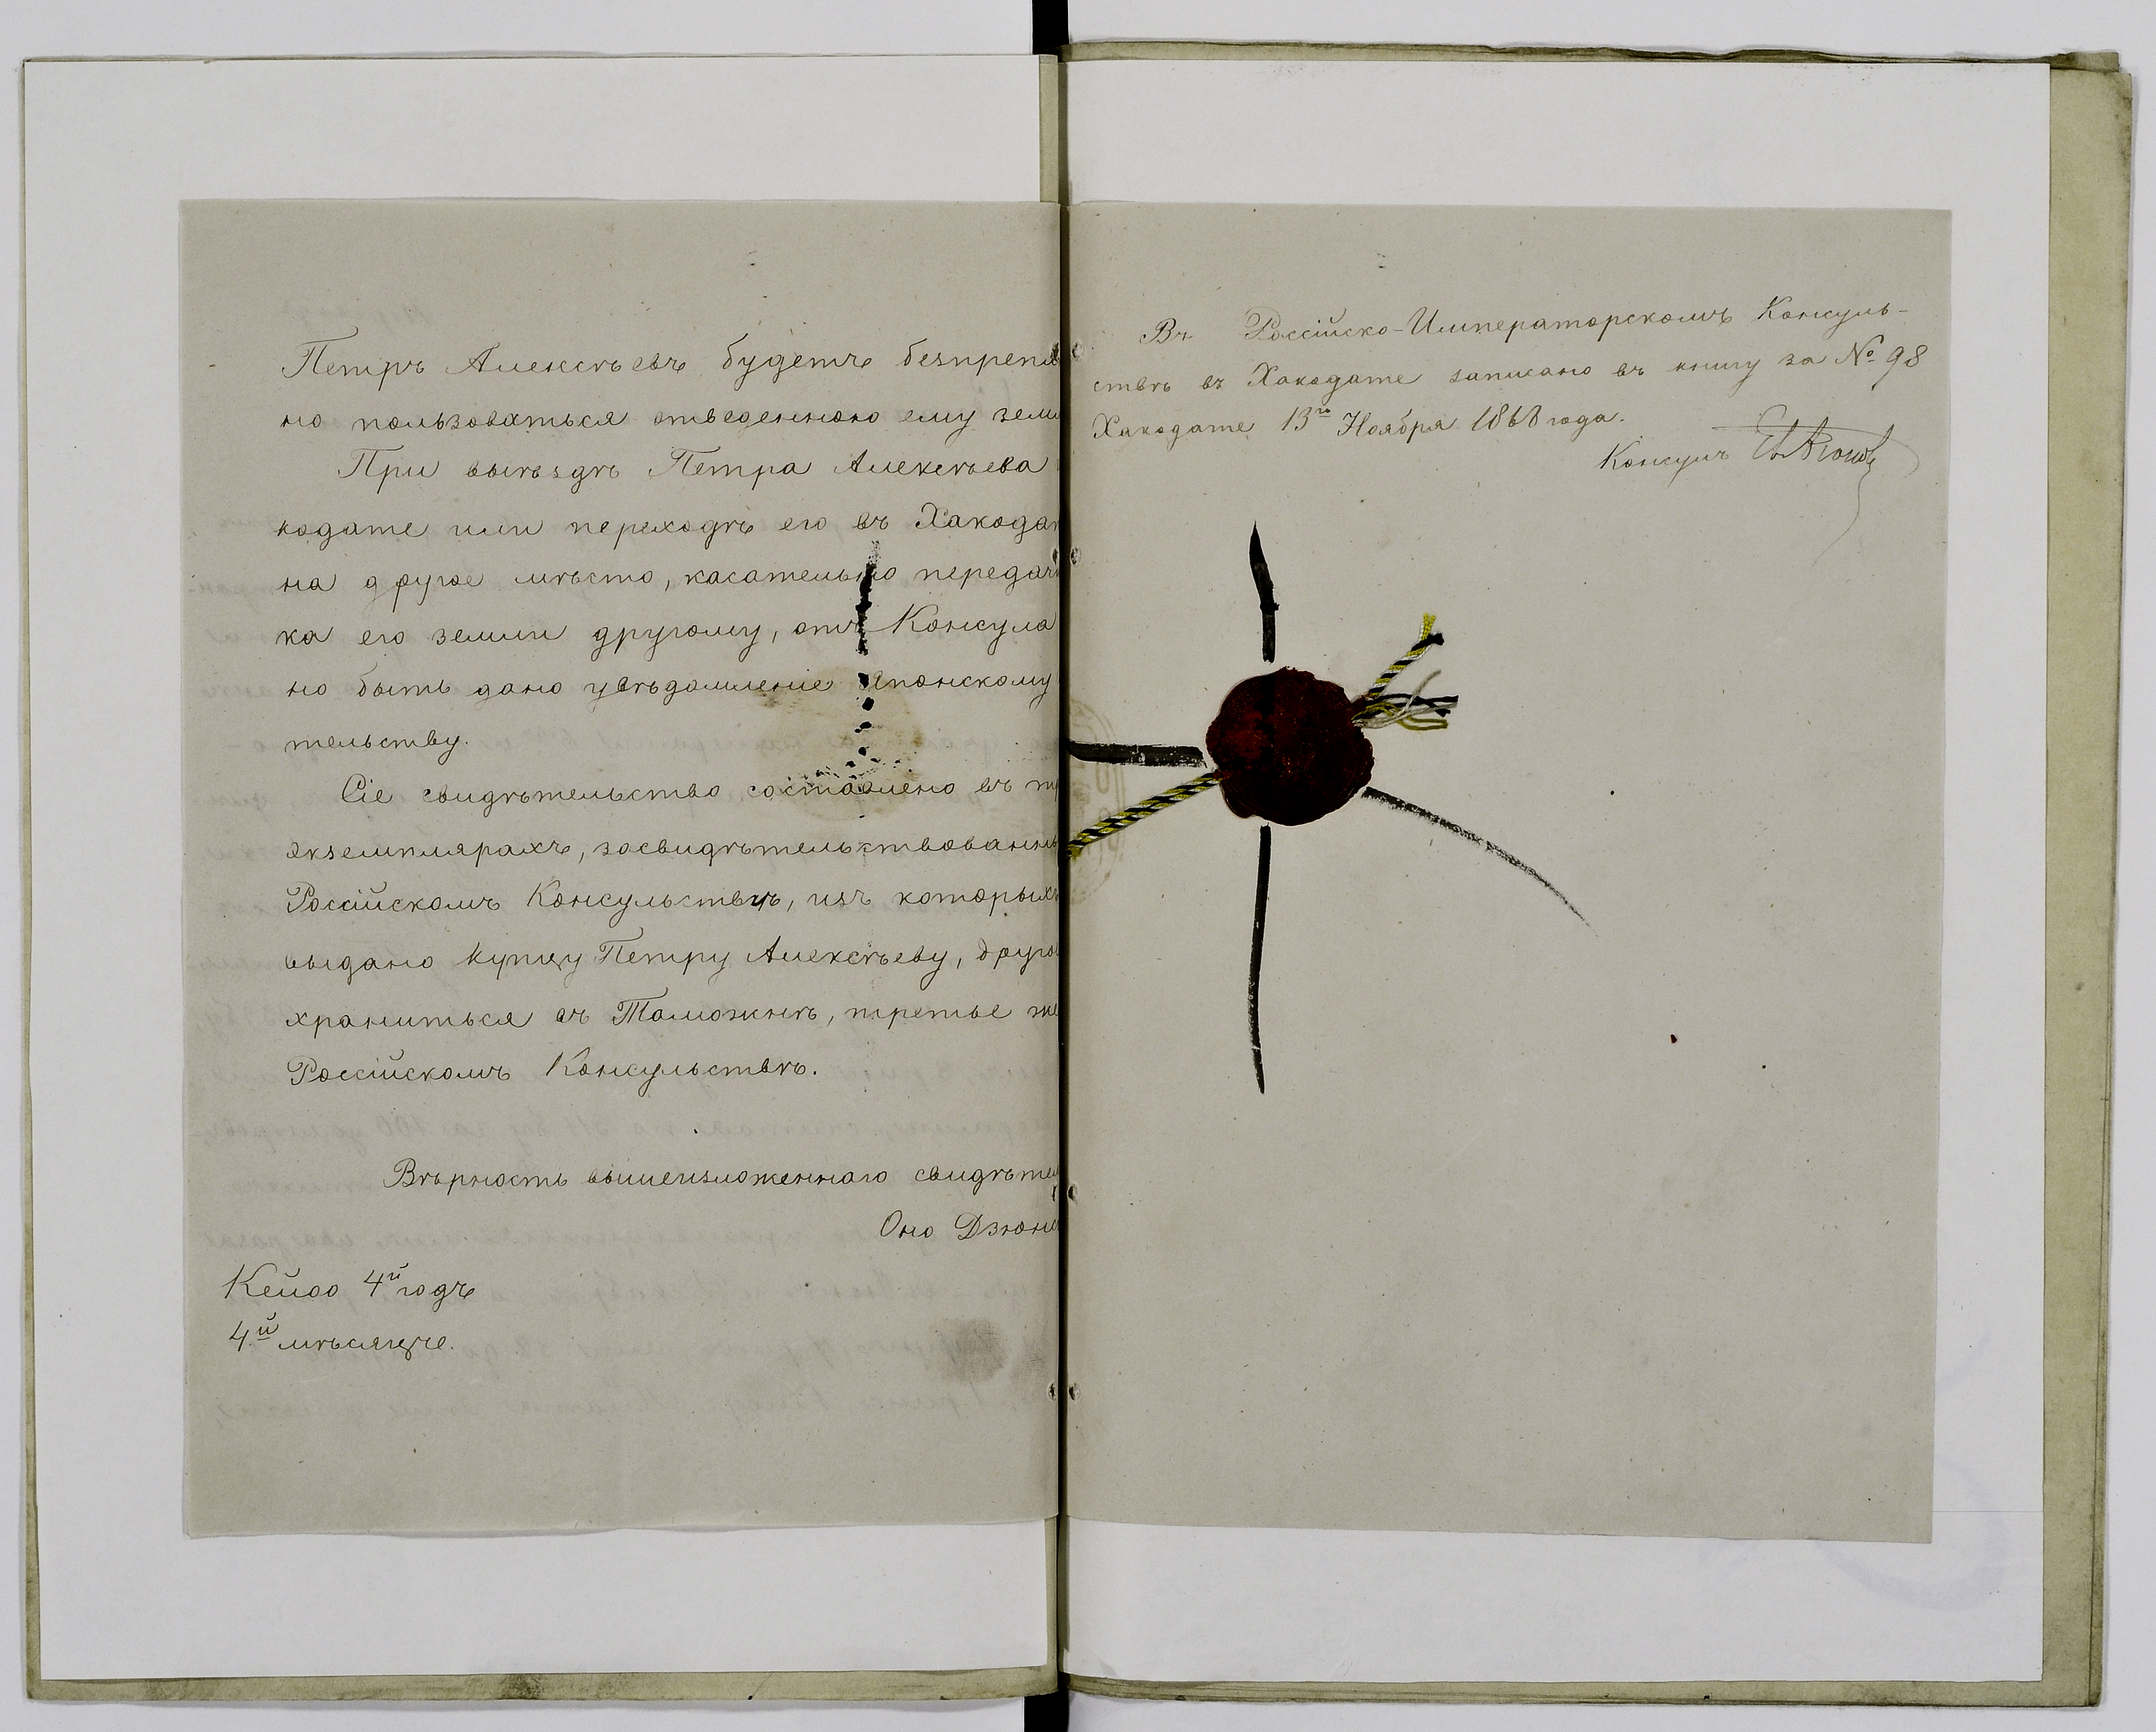 Петръ Алексѣевъ будетъ безпрепя
но пользоваться отведенною ему земл
При выѣздѣ Петра Алексѣева
кодате или переходѣ его въ Хакодат
на другое мѣсто, касательно передачи
ка его земли другому, отъ Консула
но быть дано увѣдомленіе Японскому
тельству.
Сіе свидѣтельство составлено въ тр
экземплярахъ, засвидѣтельствованны
Россійскомъ Консульствѣ, изъ которыхъ
выдано купцу Петру Алексѣеву, друго
храниться въ Таможнѣ, третье же
Россійскомъ Консульствѣ.
Вѣрность вышеизложеннаго свидѣтел
Оно Дзюн
Кейоо 4й годъ
4й мѣсяцъ.
Въ Россійско-Императорскомъ Консуль-
ствѣ въ Хакодате записано въ книгу за № 98
Хакодате 13го Ноября 1868 года.
Консулъ